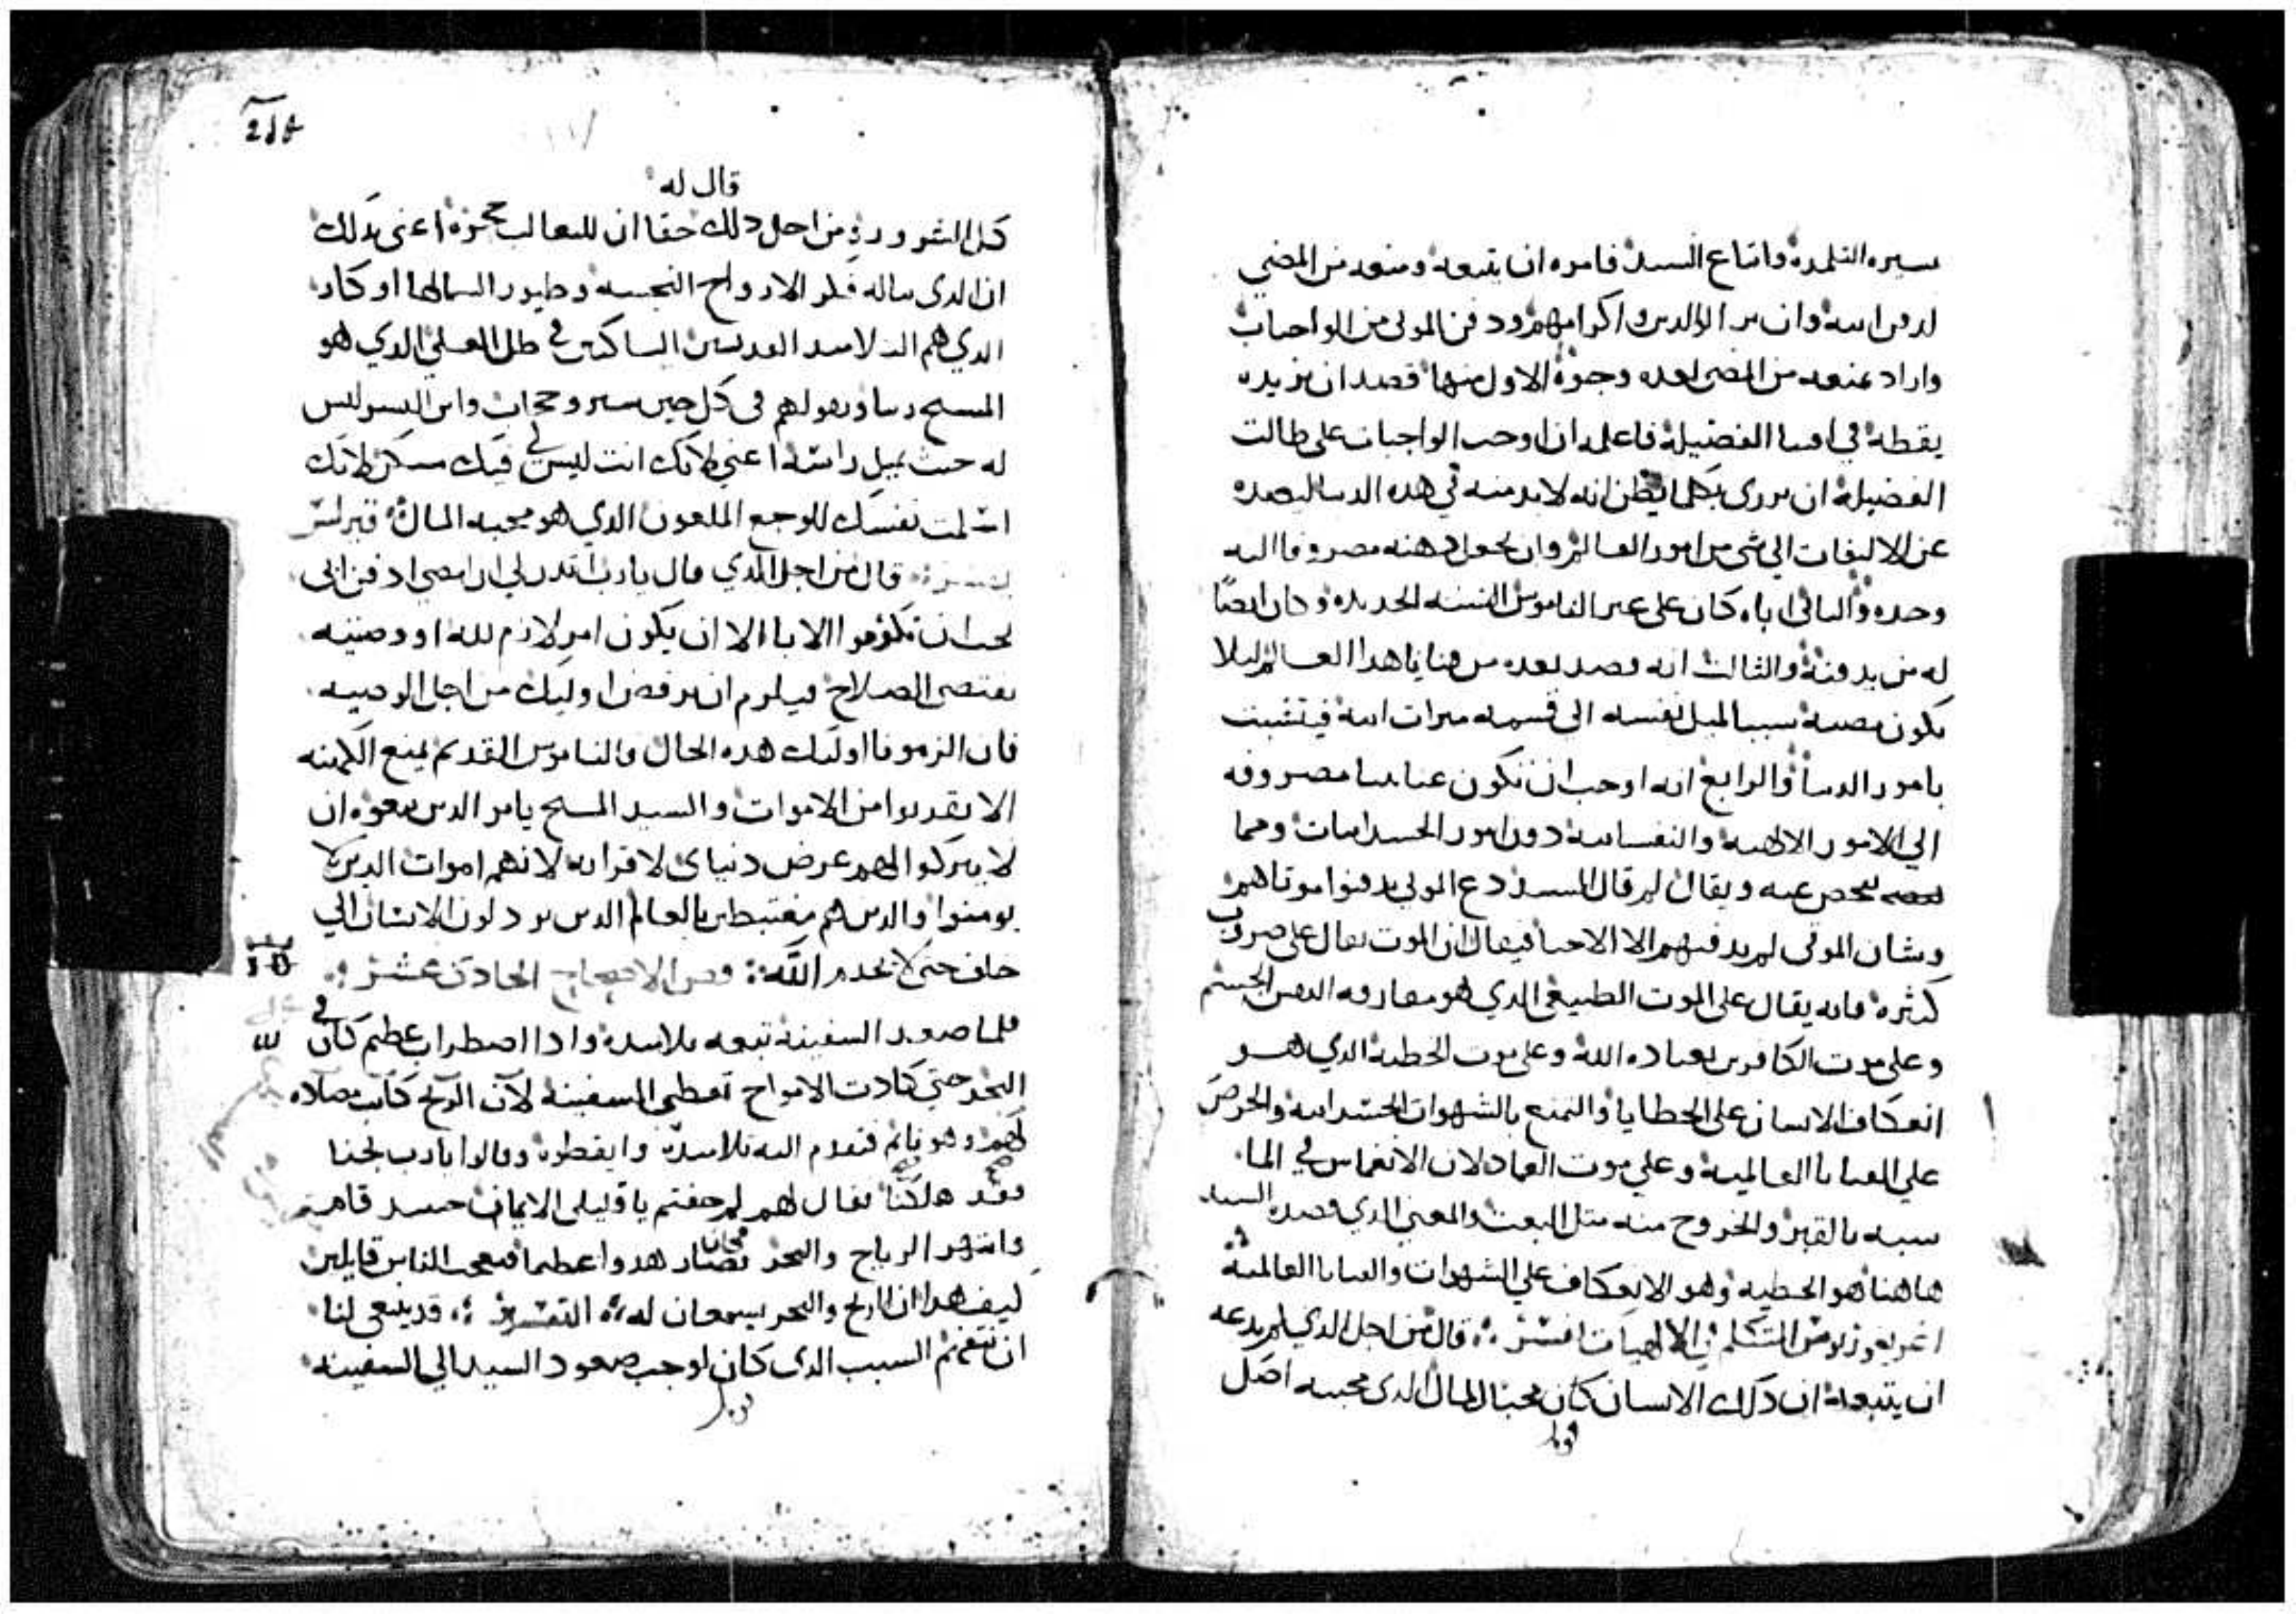 سيره التلمده واتباع السيد فامره ان يتبعه ومنعه من المضي
لدفن ابيه وان بر الوالدين واكرامهم ودفن الموتى من الواجبات
واراد بمنعه من المضى لعده وجوه الاول منها قصد ان يزيده
يقطه في افتنا الفضيله فاعلمه ان اوجب الواجبات على طالب
الفضيله ان يزدرى بكلما يظن انه لا بد منه في هذه الدنيا ليصده
عن الالتفات الي شي من امور العالم وان يجعل دهنه مصروفا اليه
وحده والثاني اباه كان على غير الناموس السنه الجديده وكان ايضا
له من يدفنه والثالث انه قصد بعده من قنايا هدا العالم ليلا
يكون مضيه سببا لميل نفسه الى قسمه ميرات ابيه فيتشبت
بامور الدنيا والرابع انه اوجب ان تكون عنايتنا مصروفه
الي الامور الالاهيه والنفسانيه دون امور الجسدانيات ومما
يفحص عنه ويقال لم قال السيد دع الموتى يدفنوا موتاهم
وشان الموتى لم يدفنهم الا الاحيا فيقال ان الموت يقال على ضروب
كثيره فانه يقال على الموت الطبيعى الدي هو مفارقه النفس الجسم
وعلى موت الكافرين بعباده الله وعلى موت الخطيه الدي هو
انعكاف الانسان على الخطايا والتمتع بالشهوات الجسدانيه والحرص
علي القنايا العالميه وعلي موت العماد لان الانغماس في الما
شبه بالقبر والخروج منه متل البعث والمعنى الدي قصده السيد
هاهنا هو الخطيه وهو الانعكاف علي الشهوات والقنايا العالميه
اغريغوريوس المتكلم في الالاهيات افسر قال من اجل الدي لم يدعه
ان يتبعه ان دلك الانسان كان محبا للمال الدى محبته اصل
قال له
كل الشرور ومن اجل دلك حقا ان للتعالب جحره اعنى بدلك
ان الدى ساله فلو الارواح النجسه وطيور السما لها اوكار
الدي هم التلاميد القديسين الساكنين في ظل العلي الدي هو
المسيح ربنا وهو لهم في كل حين ستر وحجاب وابن البشر ليس
له حيث يميل راسه اعني لانك انت ليس لي فيك مسكن لانك
اسلمت نفسك للوجع الملعون الدي هو محبه المال
قال من اجل الدي قال يارب اتدن لي ان امضي ادفن ابى
يجب ان تكرموا الابا الا ان يكون امر لازم لله او وصيه
تقتضى الصلاح فيلزم ان يرفض اوليك من اجل الوصيه
فان الزمونا اوليك هده الحال والناموس القديم يمنع الكهنه
الا يقربوا من الاموات والسيد المسيح يامر الدين يتبعوه ان
لا يتركوا الهم عرض دنياى لاقرابه لانهم اموات الدين لا
يومنوا والدين هم مغتبطين بالعالم الدين يردلون الانسان الي
خلف حتى لا يخدم الله فص الاصحاح الحادى عشر
فلما صعد السفينه تبعه تلاميده وادا اضطراب عظيم كان في
البحر حتي كادت الامواج تغطى السفينه لان الريح كانت مضاده
لهم وهو نايم فتقدم اليه تلاميده وايقظوه وقالوا يارب نجنا
فقد هلكنا فقال لهم لم خفتم يا قليلى الايمان حينيد قام
وانتهر الرياح والبحر فصار هدوا عظيما فتعجب الناس قايلين
كيف هدا ان الريح والبحر يسمعان له التفسير قد ينبغى لنا
ان نتفهم السبب الدى كان لوجب صعود السيد الي السفينه